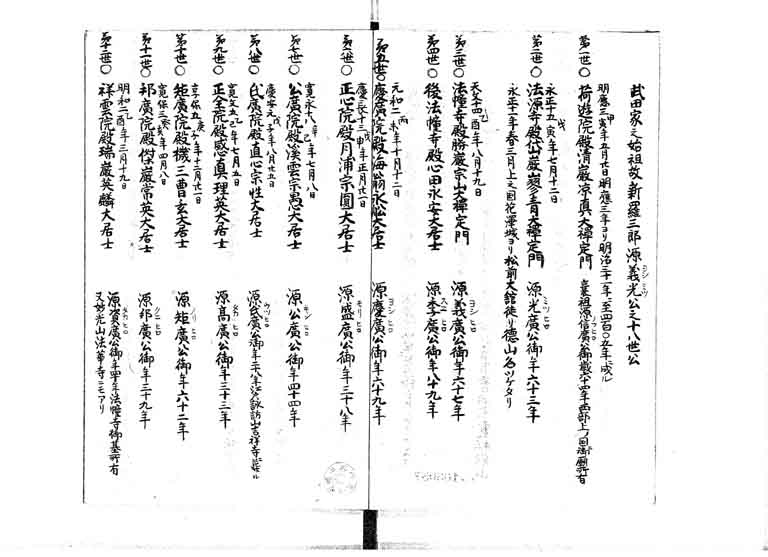 武田家之始祖故新羅三郎源義光公之十八世公
明應三甲寅年五月廿日明應三年ヨリ明治三十一年至四百〇五年ニ成ル
第一世〇荷遊院殿清巌凉真大禅定門
源信廣公御歳六十四年西部上ノ国御廟所有
永正十五戊寅年七月十二日
第二世〇法源寺殿岱巌蓼青大禅定門 源光廣公御年六十三年
永正十一年春三月上之国花澤城ヨリ松前大舘徒リ徳山名ツケタリ
天文十四乙酉年八月十九日
第三世〇法幢寺殿勝巌宗山大禅定門 源義廣公御年六十七年
第四世〇後法幢寺殿心田永安大居士 源季廣公御年八十九年
元和二丙年十月十二日
第五世〇慶廣院殿海翁永松大居士 源慶廣公御年六十九年
慶長十三戊申年正月廿一日
第六世〇正心院殿月浦宗圓大居士 源盛廣公御年三十八年
寛永十八辛巳年七月八日
第七世〇公廣院殿溪雲宗愚大居士 源公廣公御年四十四年
慶安元戊子年八月廿五日
第八世〇氏廣院殿直心宗性大居士 源氏廣公御年二十八年
寛文五乙巳年七月五日
第九世〇正全院殿感眞理英大居士 源高廣公御年三十三年
享保五庚子年十二月廿一日
第十世〇矩廣院殿機三曹玄大居士 源矩廣公御年六十二年
寛保三癸亥年四月八日
第十一世〇邦廣院殿傑巌常英大居士 源邦廣公御年三十九年
明和二乙酉年三月十九日
第十二世〇祥雲院殿瑞巌英麟大居士 源資廣公御年四十年法幢寺御墓所有
又妙光山法華寺ニモアリ